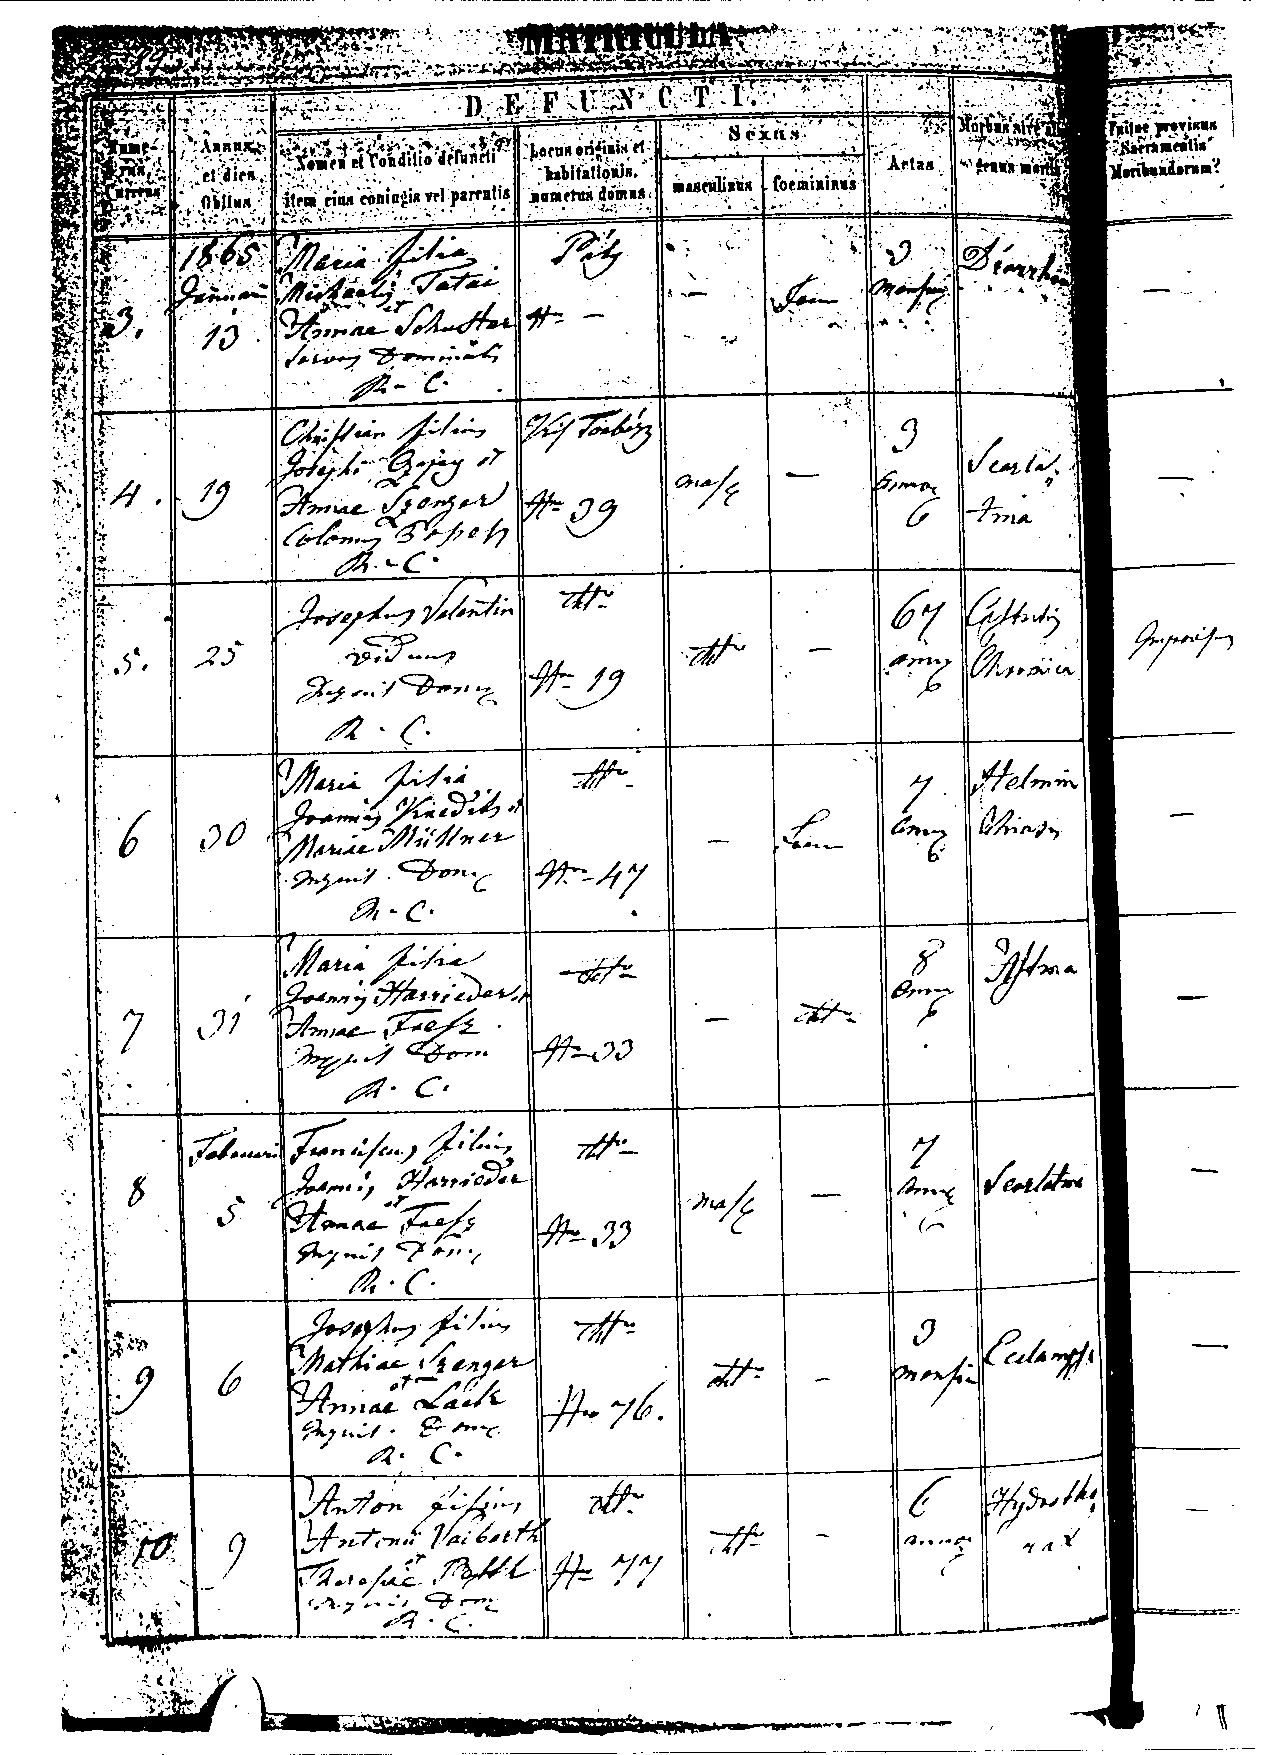 MATRICULA
DEFUNCTI.
Numerus Currens
Annus, et dies Obitus
Nomen et Conditio defuncti item eius coniugis vel parentis
Locus originis et habitationis, numerus domus.
Sexus
masculinus
foemininus
Aetas
Morbus sive
genus mortis
provisus Sacramentis Moribundorum?
3.
1865
Januarii
13
Maria filia
Michaelis Tatai
et
Annae Schuster
R. C.
Páty
Nro -
-
Foem
3
-
4.
19
Christian filius
Josephi et
Annae Szenger
Colonus
R. C.
Nro 39
masc
-
3
annor
Scarla
tina
-
5.
25
Josephus Valentin
viduus
Inquil Dom
R. C.
dtto
Nro 19
dtto
-
67
annor
Chronica
6
30
Maria filia
Joannis et
Mariae Müllner
Inquil. Dom
R. C.
dtto
Nro 47
-
Foem
7
annor
Helmin
thiasis
-
7
31
Maria filia
Joannis Harrieder et
Annae
Inquil Dom
R. C.
dtto
Nro 33
-
dtto
8
annor
Astma
-
8
Februarii
5
Franciscus filius
Joannis Harrieder
et
Annae
Inquil Dom
R. C.
dtto
Nro 33
masc
-
7
annor
Scarlatina
-
9
6
Josephus filius
Mathiae Szenger
et
Annae
Inquil. Dom
R. C.
dtto
Nro 76.
dtto
-
3
mensium
Eclampsis
-
10
9
Anton filius
Antonii
et
Theresiae
Inquil Dom
R. C.
dtto
Nro 77
dtto
-
6
annor
Hydrotho
rax
-